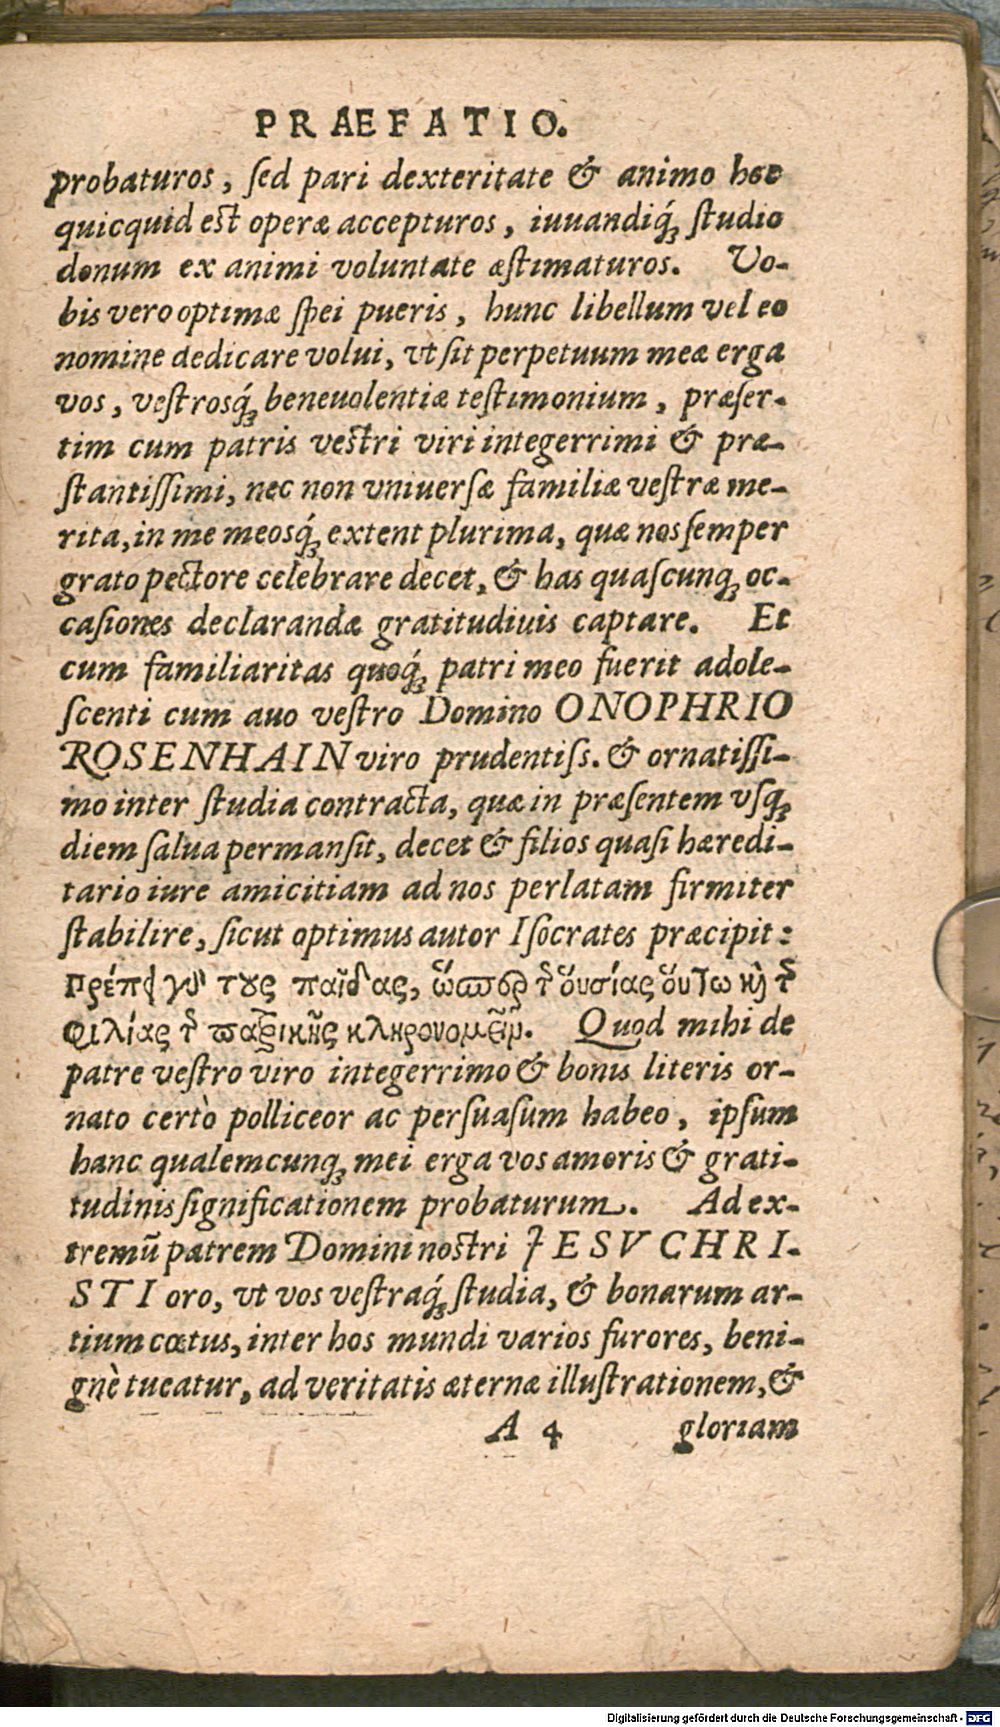 PRAEFATIO.
probaturos, ſed pari dexteritate & animo hoc
quicquid eſt operæ accepturos, iuuandiq́ꝫ ſtudio
donum ex animi voluntate æſtimaturos. Vo-
bis vero optimæ ſpei pueris, hunc libellum vel eo
nomine dedicare volui, vt ſit perpetuum meæ erga
vos, veſtrosq́ꝫ beneuolentiæ teſtimonium, præſer-
tim cum patris veſtri viri integerrimi & præ-
ſtantiſſimi, nec non vniuerſæ familiæ veſtræ me-
rita, in me meosq́ꝫ extent plurima, quæ nos ſemper
grato pectore celebrare decet, & has quaſcunqꝫ oc-
caſiones declarandæ gratitudiuis captare. Et
cum familiaritas quoq́ꝫ patri meo fuerit adole-
ſcenti cum auo veſtro Domino ONOPHRIO
ROSENHAIN viro prudentiſs. & ornatiſſi-
mo inter ſtudia contracta, quæ in præſentem vſqꝫ
diem ſalua permanſit, decet & filios quaſi hæredi-
tario iure amicitiam ad nos perlatam firmiter
ſtabilire, ſicut optimus autor Iſocrates præcipit:
πρέπει γὸ τους παῖδας, ὥσπερ τ̃ οὐσίας οὕτω κỳ τ̃
φιλίας τ̃ πατρικῆς κληρονομεῖν. Quod mihi de
patre veſtro viro integerrimo & bonis literis or-
nato certò polliceor ac perſuaſum habeo, ipſum
hanc qualemcunqꝫ mei erga vos amoris & grati-
tudinis ſignificationem probaturum. Ad ex-
tremũ patrem Domini noſtri JESV CHRI-
STI oro, vt vos veſtraq́ꝫ ſtudia, & bonarum ar-
tium cœtus, inter hos mundi varios furores, beni-
gnè tueatur, ad veritatis æternæ illuſtrationem, &
A 4 gloriam
Digitalisierung gefördert durch die Deutsche Forschungsgemeinschaft - DFG